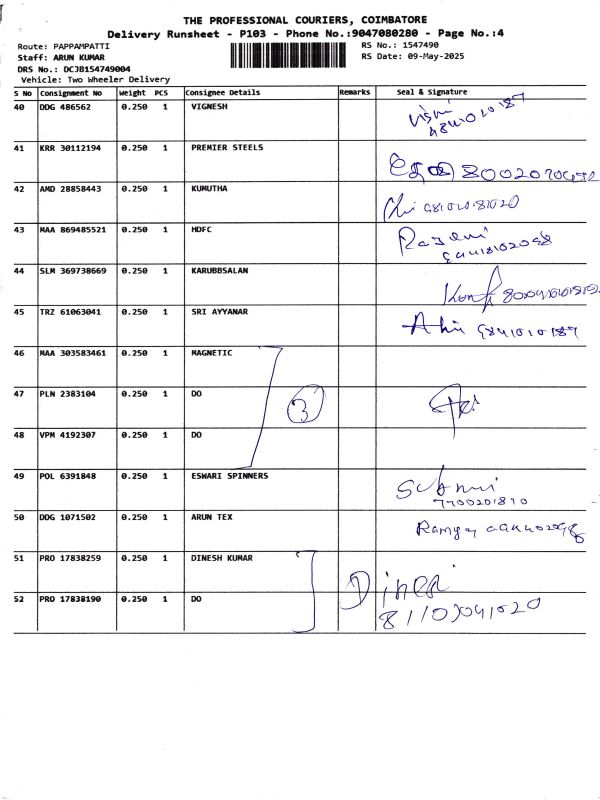 THE PROFESSIONAL COURIERS, COIMBATORE
Delivery Runsheet - P103 - Phone No.:9047080280 - Page No.:4
Route: PAPPAMPATTI RS No.: 1547490
Staff: ARUN KUMAR RS Date: 09-May-2025
DRS No.: DCJB154749004
Vehicle: Two Wheeler Delivery
S No Consignment No Weight PCS Consignee Details Remarks Seal & Signature
40 DDG 486562 0.250 1 VIGNESH
9841010187
41 KRR 30112194 0.250 1 PREMIER STEELS
42 AMD 28858443 0.250 1 KUMUTHA
43 MAA 869485521 0.250 1 HDFC
44 SLM 369738669 0.250 1 KARUBBSALAN
45 TRZ 61063041 0.250 1 SRI AYYANAR
9841010187
46 MAA 303583461 0.250 1 MAGNETIC
47 PLN 2383104 0.250 1 DO 3
48 VPM 4192307 0.250 1 DO
49 POL 6391848 0.250 1 ESWARI SPINNERS
7700201810
50 DDG 1071502 0.250 1 ARUN TEX
Ramya
51 PRO 17838259 0.250 1 DINESH KUMAR
Dinesh
52 PRO 17838190 0.250 1 DO